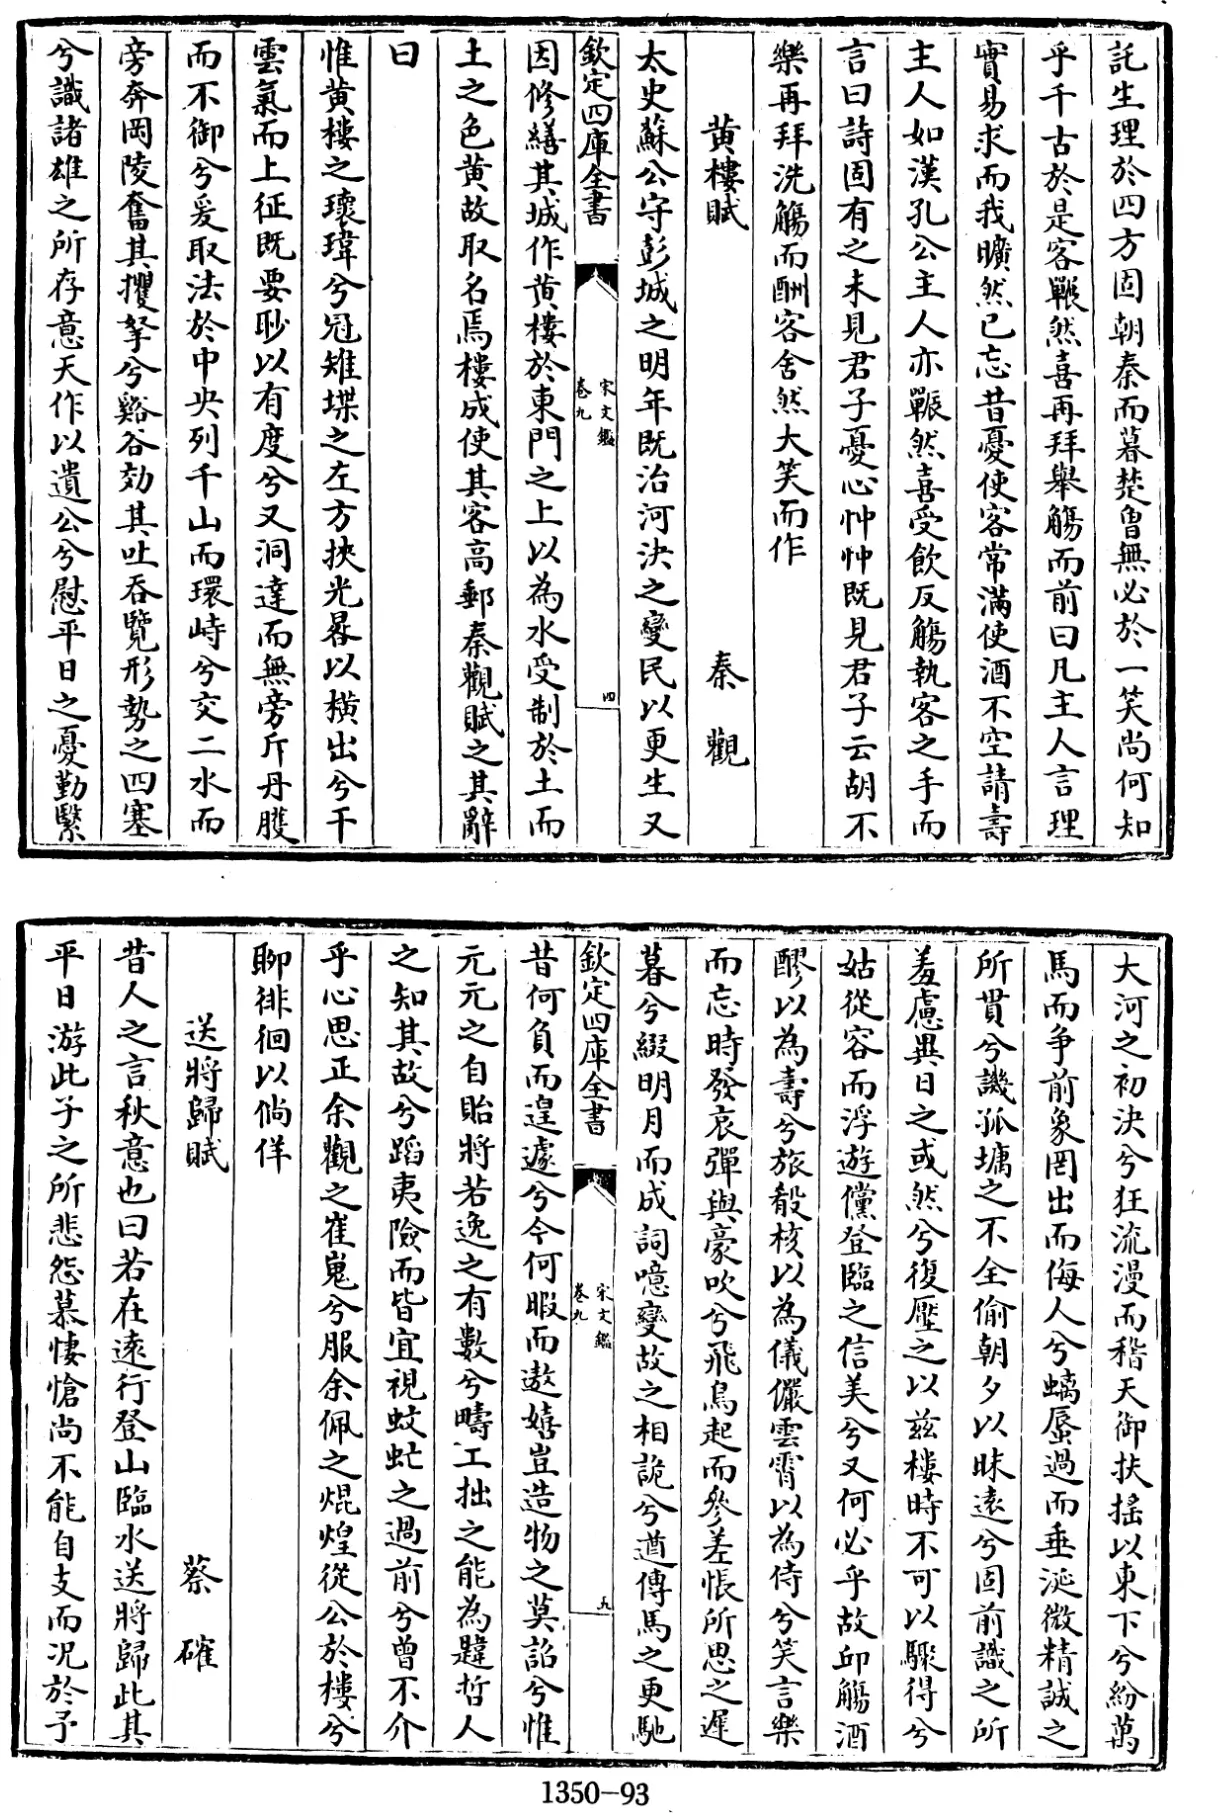 託生理於四方固朝秦而暮楚曾無必於一笑尚何知
乎千古於是客囅然喜再拜舉觴而前曰凡主人言理
實易求而我曠然已忘昔憂使客常滿使酒不空請壽
主人如漢孔公主人亦囅然喜受飲反觴執客之手而
言曰詩固有之未見君子憂心忡忡既見君子云胡不
樂再拜洗觴而酬客舍然大笑而作
黄樓賦 秦觀
太史蘇公守彭城之明年既治河決之變民以更生又
欽定四庫全書 宋文鑑 卷九 四
因修繕其城作黄樓於東門之上以為水受制於土而
土之色黄故取名焉樓成使其客高郵秦觀賦之其辭
曰
惟黄樓之瓌瑋兮冠雉堞之左方挾光晷以橫出兮干
雲氣而上征既要眇以有度兮又洞達而無旁斥丹雘
而不御兮爰取法於中央列千山而環峙兮交二水而
旁奔岡陵奮其攫拏兮谿谷効其吐吞覽形勢之四塞
兮識諸雄之所存意天作以遺公兮慰平日之憂勤繄
大河之初決兮狂流漫而稽天御扶搖以東下兮紛萬
馬而争前象罔出而侮人兮螭蜃過而垂涎微精誠之
所貫兮譏孤墉之不全偷朝夕以昧遠兮固前識之所
羞慮異日之或然兮復壓之以兹樓時不可以驟得兮
姑從容而浮遊儻登臨之信美兮又何必乎故邱觴酒
醪以為壽兮旅殽核以為儀儼雲霄以為侍兮笑言樂
而忘時發哀彈與豪吹兮飛鳥起而參差悵所思之遲
暮兮綴明月而成詞噫變故之相詭兮遒傳馬之更馳
昔何負而遑遽兮今何暇而遨嬉豈造物之莫詔兮惟
欽定四庫全書 宋文鑑 卷九 五
元元之自貽將苦逸之有數兮疇工拙之能為韙哲人
之知其故兮蹈夷險而皆宜視蚊虻之過前兮曾不介
乎心思正余觀之崔嵬兮服余佩之焜煌從公於樓兮
聊徘徊以倘佯
送將歸賦 蔡確
昔人之言秋意也曰若在遠行登山臨水送將歸此其
平日游此子之所悲怨慕悽愴尚不能自支而况於予
1350-93